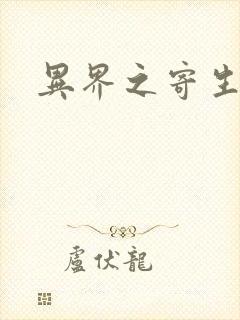 異界之寄生
盧伏龍